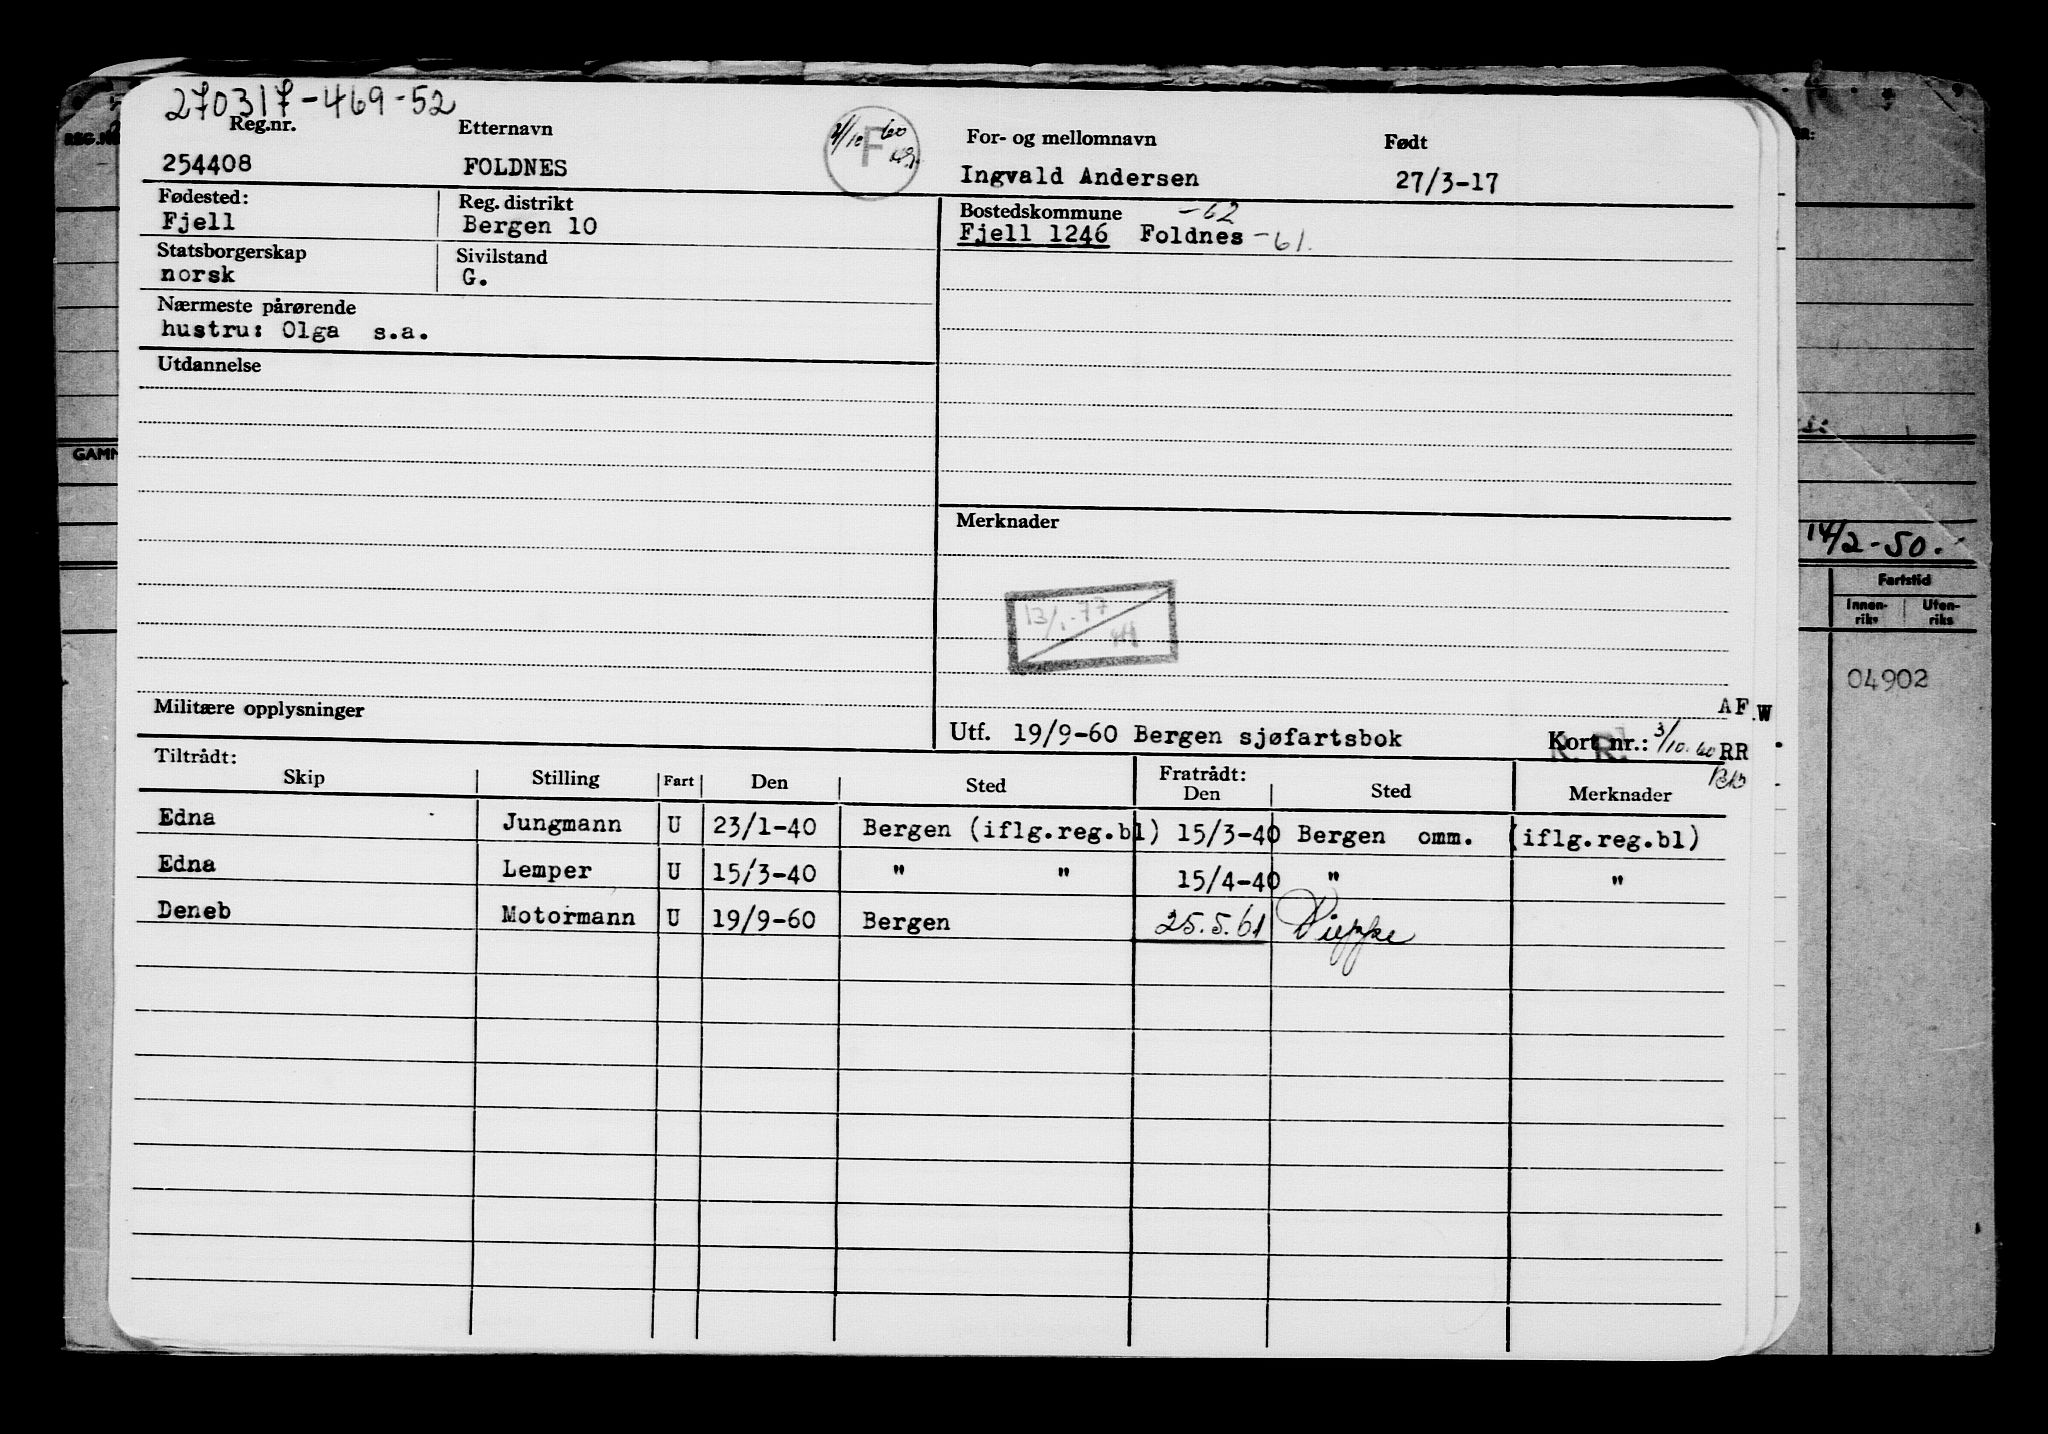 270317-469-52
Reg.nr. Etternavn For- og mellomnavn Født
254408 FOLDNES F Ingvald Andersen 27/3-17
Fødested: Reg. distrikt Bostedskommune -62
Fjell Bergen 10 Fjell 1246 Foldnes -61.
Statsborgerskap Sivilstand
norsk G.
Nærmeste pårørende
hustru: Olga s.a.
Utdannelse
Merknader
13/1-77
Militære opplysninger
Utf. 19/9-60 Bergen sjøfartsbok Kort nr.: 3/10.60 RR
AF.W
Tiltrådt: Fratrådt:
Skip Stilling Fart Den Sted Den Sted Merknader
Edna Jungmann U 23/1-40 Bergen (iflg.reg.bl) 15/3-40 Bergen omm. (iflg.reg.bl)
Edna Lemper U 15/3-40 " " 15/4-40 " "
Deneb Motormann U 19/9-60 Bergen 25.5.61 Dieppe
REG.N
GAMM
14/2-50.
Fartstid
Innen-riks Uten-riks
04902